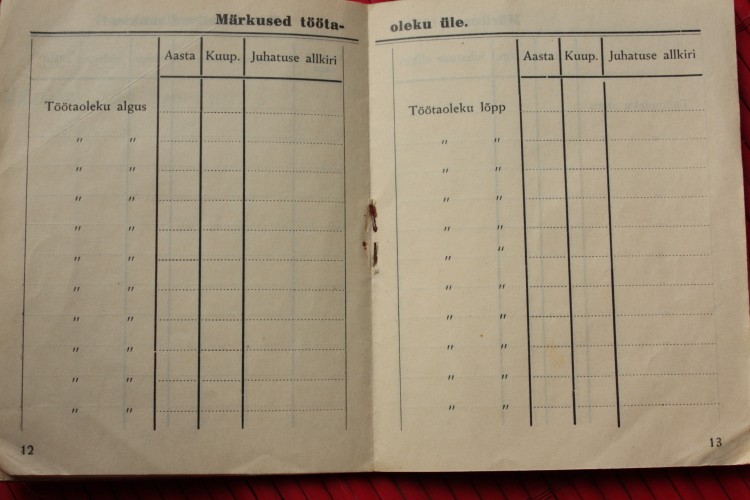 Märkused tööta-
Aasta Kuup. Juhatuse allkiri
Töötaoleku algus
" "
" "
" "
" "
" "
" "
" "
" "
" "
" "
12
oleku üle.
Aasta Kuup. Juhatuse allkiri
Töötaoleku lõpp
" "
" "
" "
" "
" "
" "
" "
" "
" "
" "
13